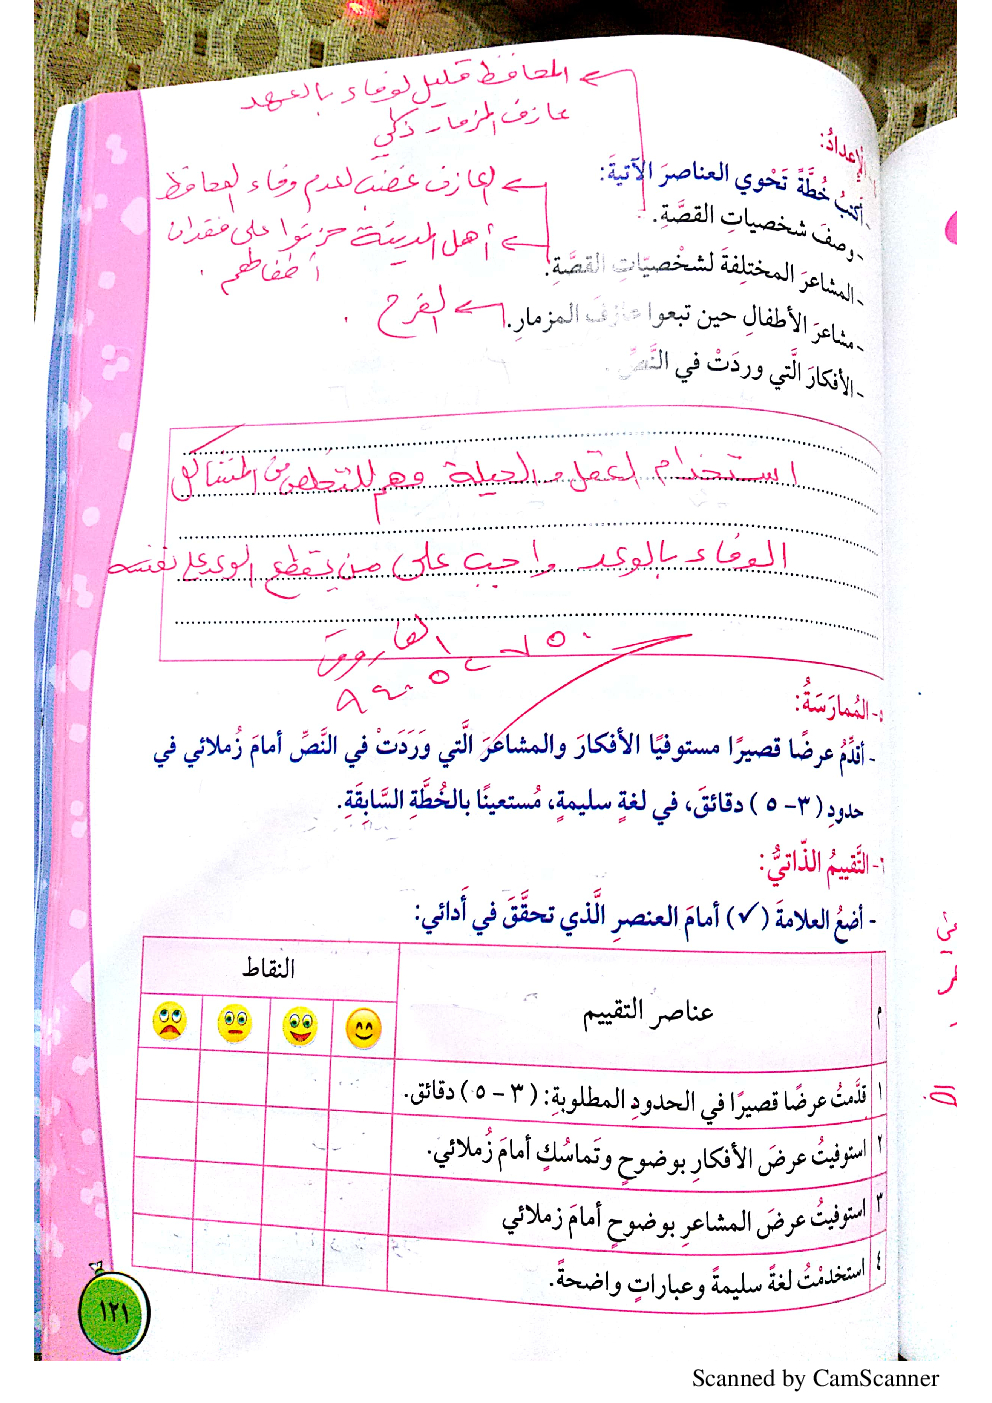 المحافظ قليل لوفاء بالعهد
عازف المزمار ذكي
الإعدادُ:
- أكتبُ خُطَّةً تَحْوي العناصرَ الآتيةَ:
العازف غضب لعدم وفاء المحافظ
- وصفَ شخصياتِ القصَّةِ.
أهل المدينة حزنوا على فقدان
أطفالهم .
- المشاعرَ المختلفةَ لشخصيّاتِ القصَّةِ.
الفرح .
- مشاعرَ الأطفالِ حين تبعوا عازفَ المزمارِ.
- الأفكارَ الَّتي وردَتْ في النَّصِّ.
استخدام العقل والحيلة وهم للتخلص من المشاكل
الوفاء بالوعد واجب على من يقطع الوعد على نفسه
الفاروق
٥- المُمارَسَةُ:
- أقدِّمُ عرضًا قصيرًا مستوفيًا الأفكارَ والمشاعرَ الَّتي وَرَدَتْ في النَّصِّ أمامَ زُملائي في
حدودِ (٣- ٥) دقائقَ، في لغةٍ سليمةٍ، مُستعينًا بالخُطَّةِ السَّابِقَةِ.
٦- التَّقييمُ الذّاتيُّ:
- أضعُ العلامةَ (✓) أمامَ العنصرِ الَّذي تحقَّقَ في أدائي:
م عناصر التقييم النقاط
١ قدَّمتُ عرضًا قصيرًا في الحدودِ المطلوبةِ: (٣ - ٥) دقائق.
٢ استوفيتُ عرضَ الأفكارِ بوضوحٍ وتَماسُكٍ أمامَ زُملائي.
٣ استوفيتُ عرضَ المشاعرِ بوضوحٍ أمامَ زملائي
٤ استخدمْتُ لغةً سليمةً وعباراتٍ واضحةً.
١٢١
Scanned by CamScanner